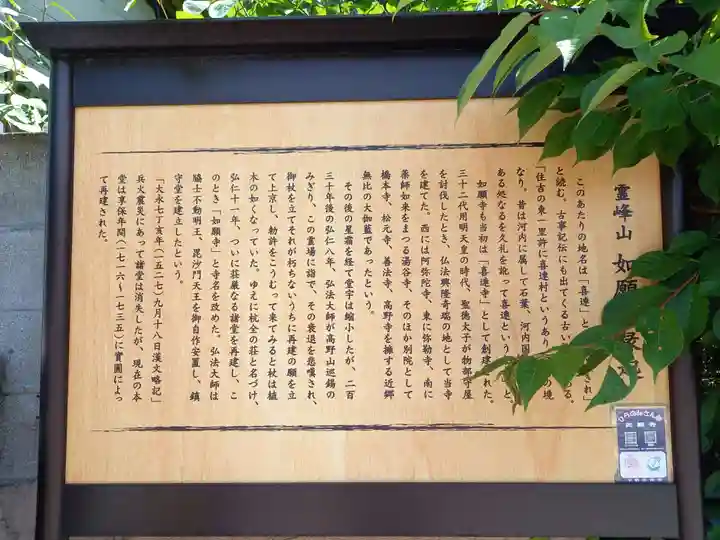 霊峰山 如願
このあたりの地名は「喜連」と
と読む。古事記伝にも出てくる古い
「住吉の東一里許に喜連村というあり
なり。昔は河内に属して石葉、河内国
ある処なるを久礼を訛って喜連という
如願寺も当初は「喜連寺」として創建された。
三十二代用明天皇の時代、聖徳太子が物部守屋
を討伐したとき、仏法興隆奇瑞の地として当寺
を建てた。西には阿弥陀寺、東に弥勒寺、南に
薬師如来をまつる湯谷寺、そのほか別院として
橋本寺、松元寺、善法寺、高野寺を擁する近郷
無比の大伽藍であったという。
その後の星霜を経て堂宇は縮小したが、二百
三十年後の弘仁八年、弘法大師が高野山巡錫の
みぎり、この霊場に詣で、その衰退を悲嘆され、
御杖を立てそれが朽ちないうちに再建の願を立
て上京し、勅許をこうむって来てみると杖は植
木の如くなっていた。ゆえに杭全の荘と名づけ、
弘仁十一年、ついに荘厳なる諸堂を再建し、こ
のとき「如願寺」と寺名を改めた。弘法大師は
脇士不動明王、毘沙門天王を御自作安置し、鎮
守堂を建立したという。
「大永七丁亥年（一五二七）九月十八日漢文略記」
兵火震災にあって諸堂は消失したが、現在の本
堂は享保年間（一七一六〜一七三五）に實圓によっ
て再建された。
ひらのみてさん帖
如願寺